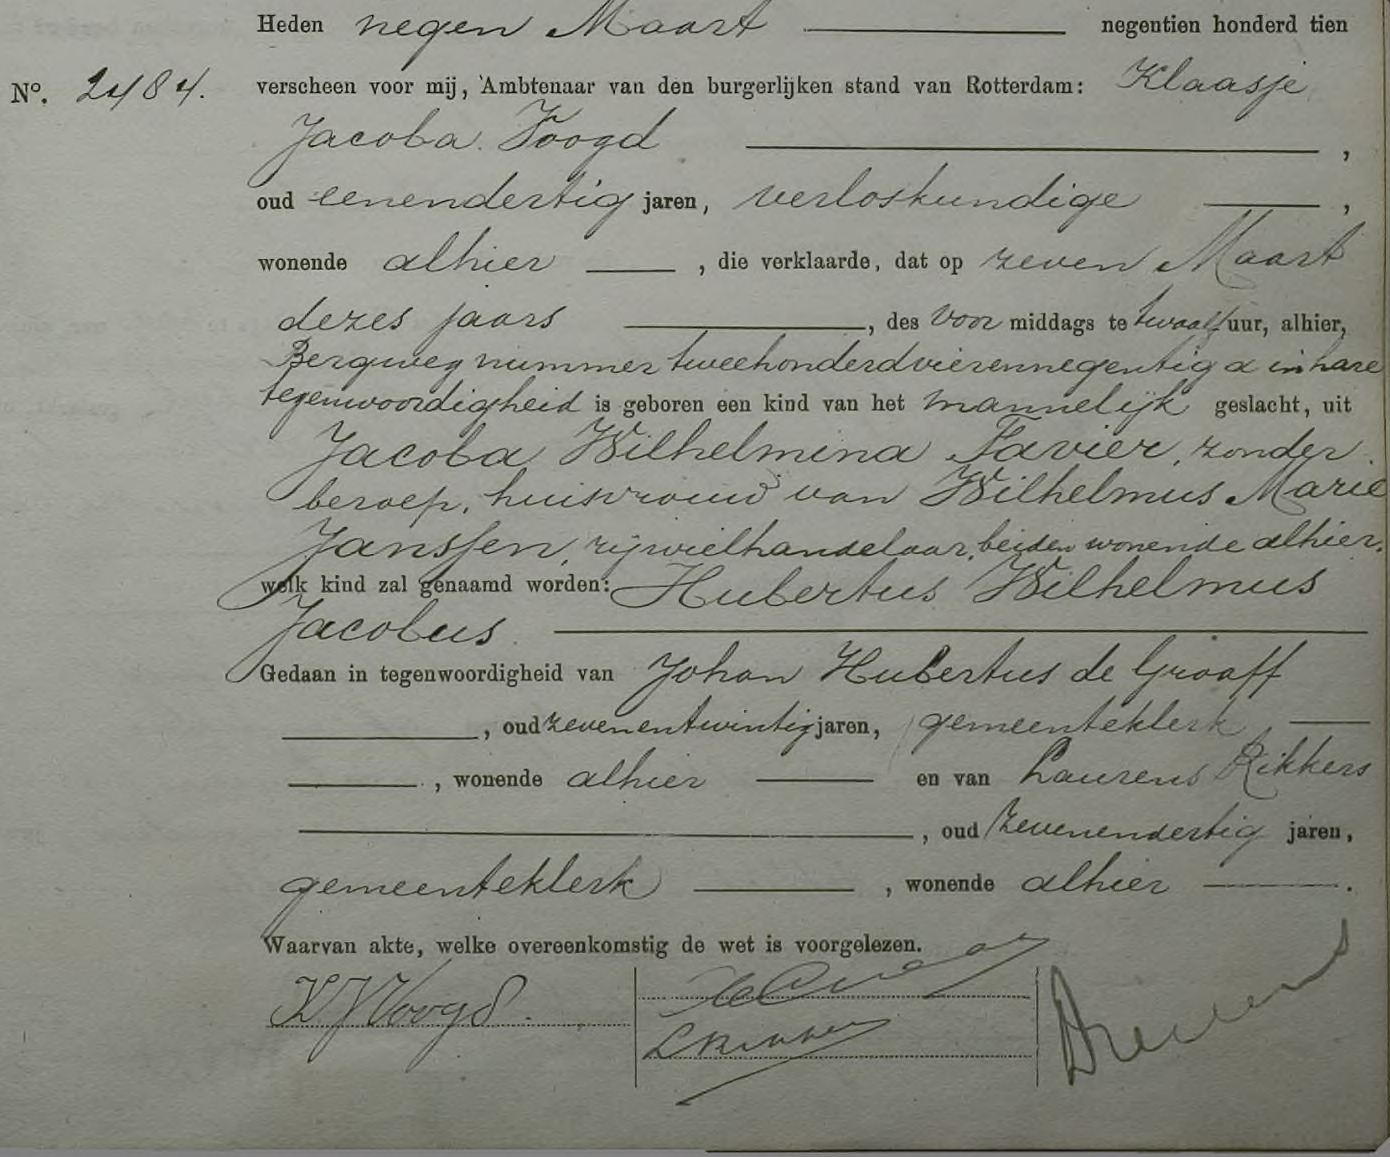 Heden negen Maart negentien honderd tien
No. 2484. verscheen voor mij, Ambtenaar van den burgerlijken stand van Rotterdam: Klaasje
Jacoba Voogd ,
oud eenendertig jaren, verloskundige ,
wonende alhier , die verklaarde, dat op zeven Maart
dezes jaars , des voor middags te twaalf uur, alhier,
Bergweg nummer tweehonderdvierennegentig a in hare
tegenwoordigheid is geboren een kind van het mannelijk geslacht, uit
Jacoba Wilhelmina Favier, zonder
beroep, huisvrouw van Wilhelmus Marie
Janssen, rijwielhandelaar, beiden wonende alhier,
welk kind zal genaamd worden: Hubertus Wilhelmus
Jacobus
Gedaan in tegenwoordigheid van Johan Hubertus de Graaff
, oud zevenentwintig jaren, gemeenteklerk
, wonende alhier en van Laurens Rikkers
, oud zevenendertig jaren,
gemeenteklerk , wonende alhier .
Waarvan akte, welke overeenkomstig de wet is voorgelezen.
K J Voogd.
L Rikkers